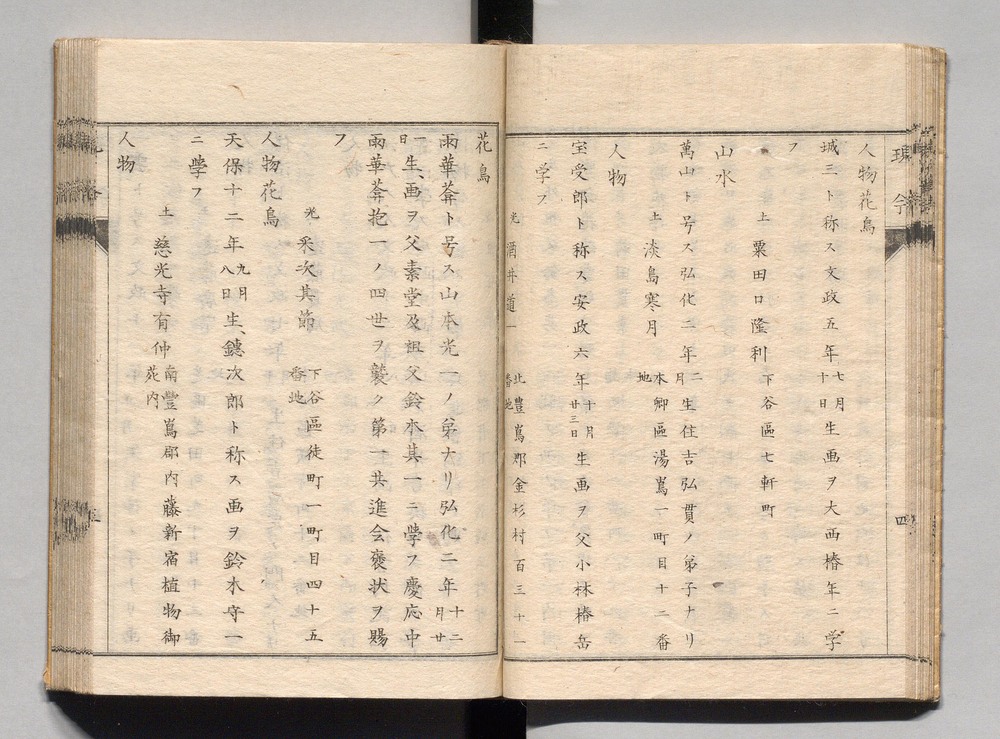 人物花鳥
城三ト称ス文政五年七月十日生画ヲ大西椿年ニ学
フ
土 粟田口隆利 下谷區七軒町
山水
萬山ト号ス弘化二年二月生住吉弘貫ノ弟子ナリ
土 淡島寒月 本郷區湯嶌一町目十二番地
人物
宝受郎ト称ス安政六年十月廿三日生画ヲ父小林椿岳
ニ学フ
光 酒井道一 北豊嶌郡金杉村百三十一番地
花鳥
雨華葊ト号ス山本光一ノ弟ナリ弘化二年十二月廿
一日生、画ヲ父素堂及祖父鈴木其一ニ學フ慶応中
雨華葊抱一ノ四世ヲ襲ク第一共進会褒状ヲ賜
フ
光 釆次其節 下谷區徒町一町目四十五番地
人物花鳥
天保十二年九月八日生、鐻次郎ト称ス画ヲ鈴木守一
ニ學フ
土 慈光寺有仲 南豐嶌郡内藤新宿植物御苑内
人物
現今
四